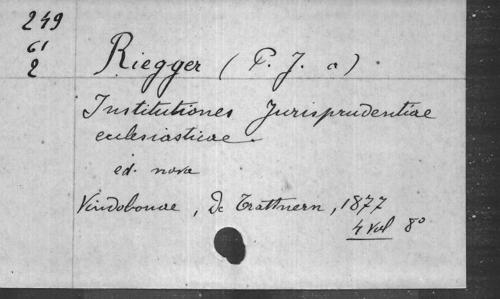 249
61
2
Riegger (P. J. a)
Institutiones Jurisprudentiae
ecclesiasticae.
ed. nova
Vindobonae, De Trattnern, 1877
4 vol 8°